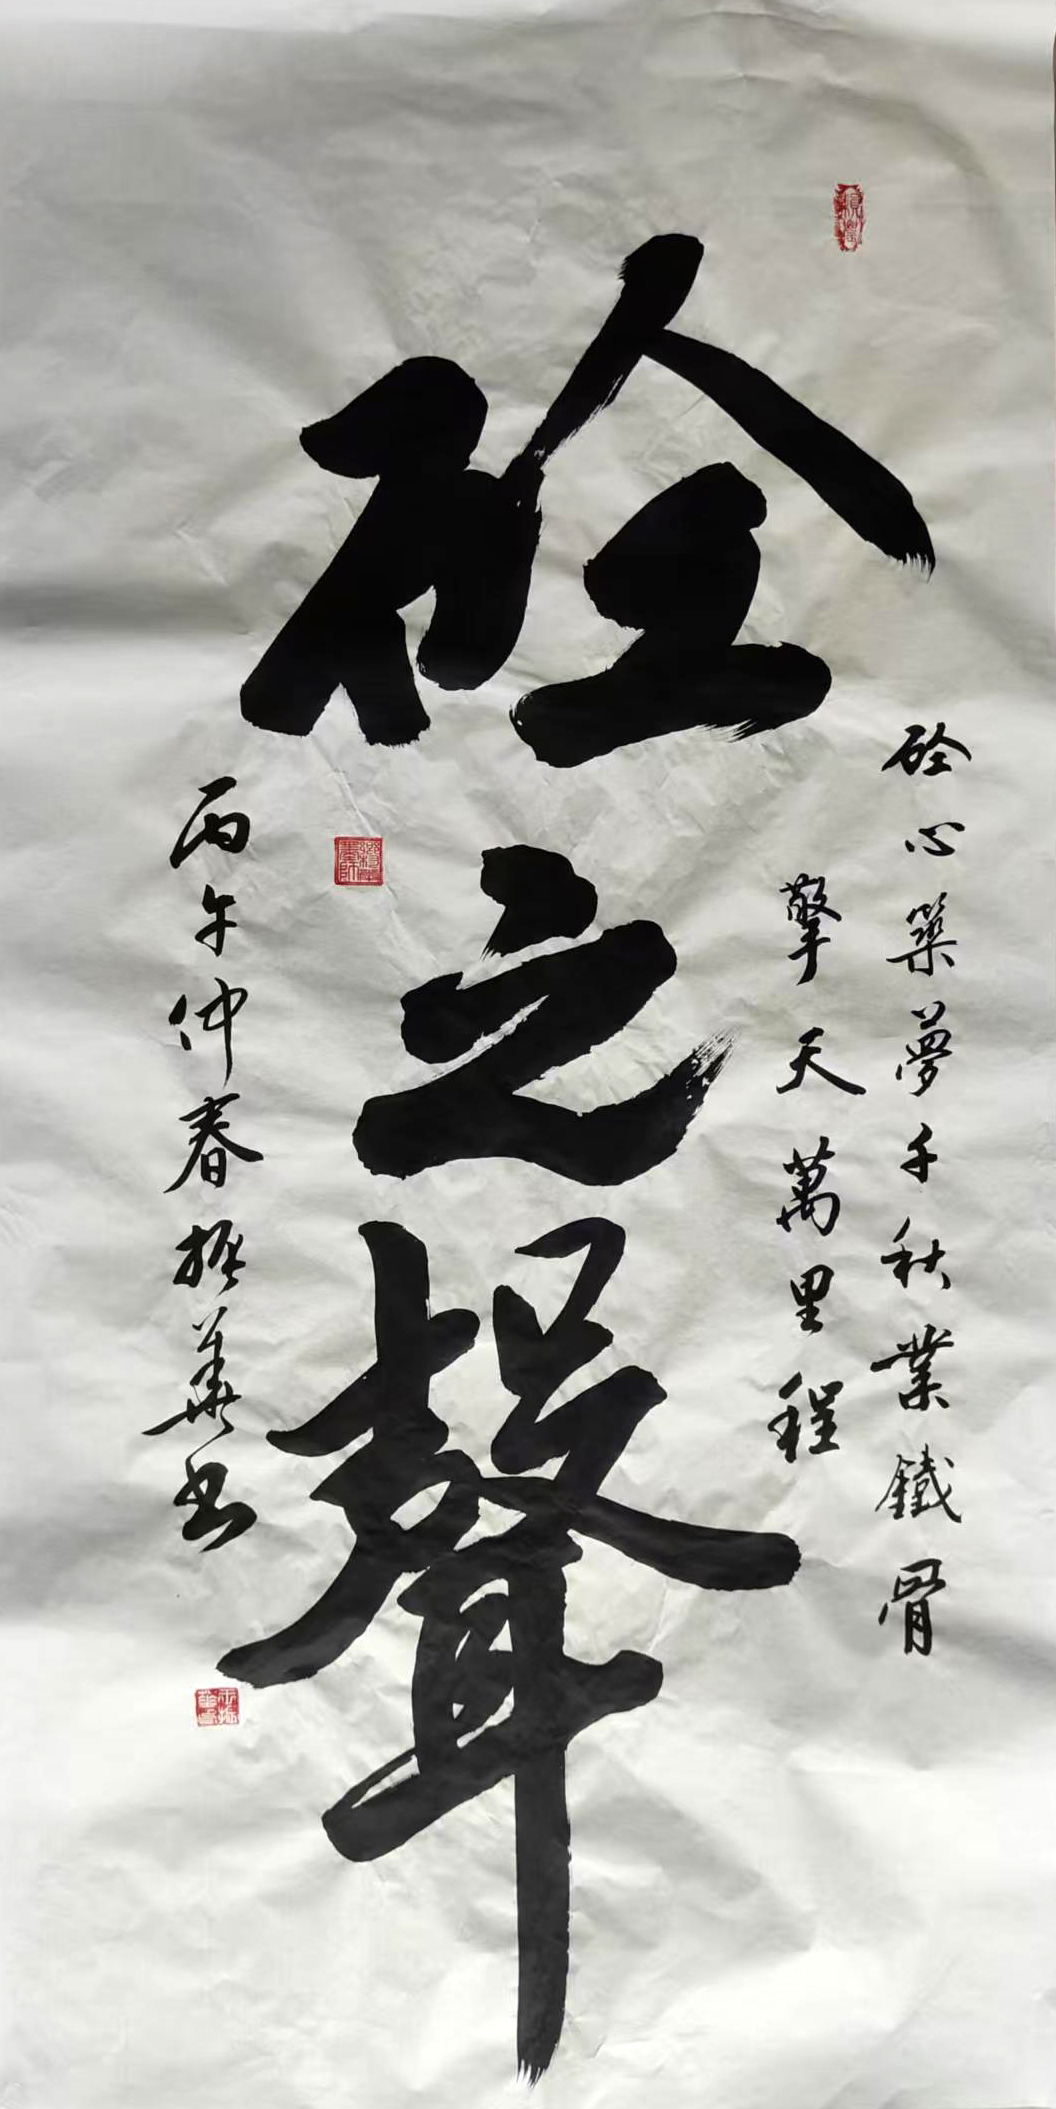 砼之聲
砼心築夢千秋業鐵骨
擎天萬里程
丙午仲春振華書